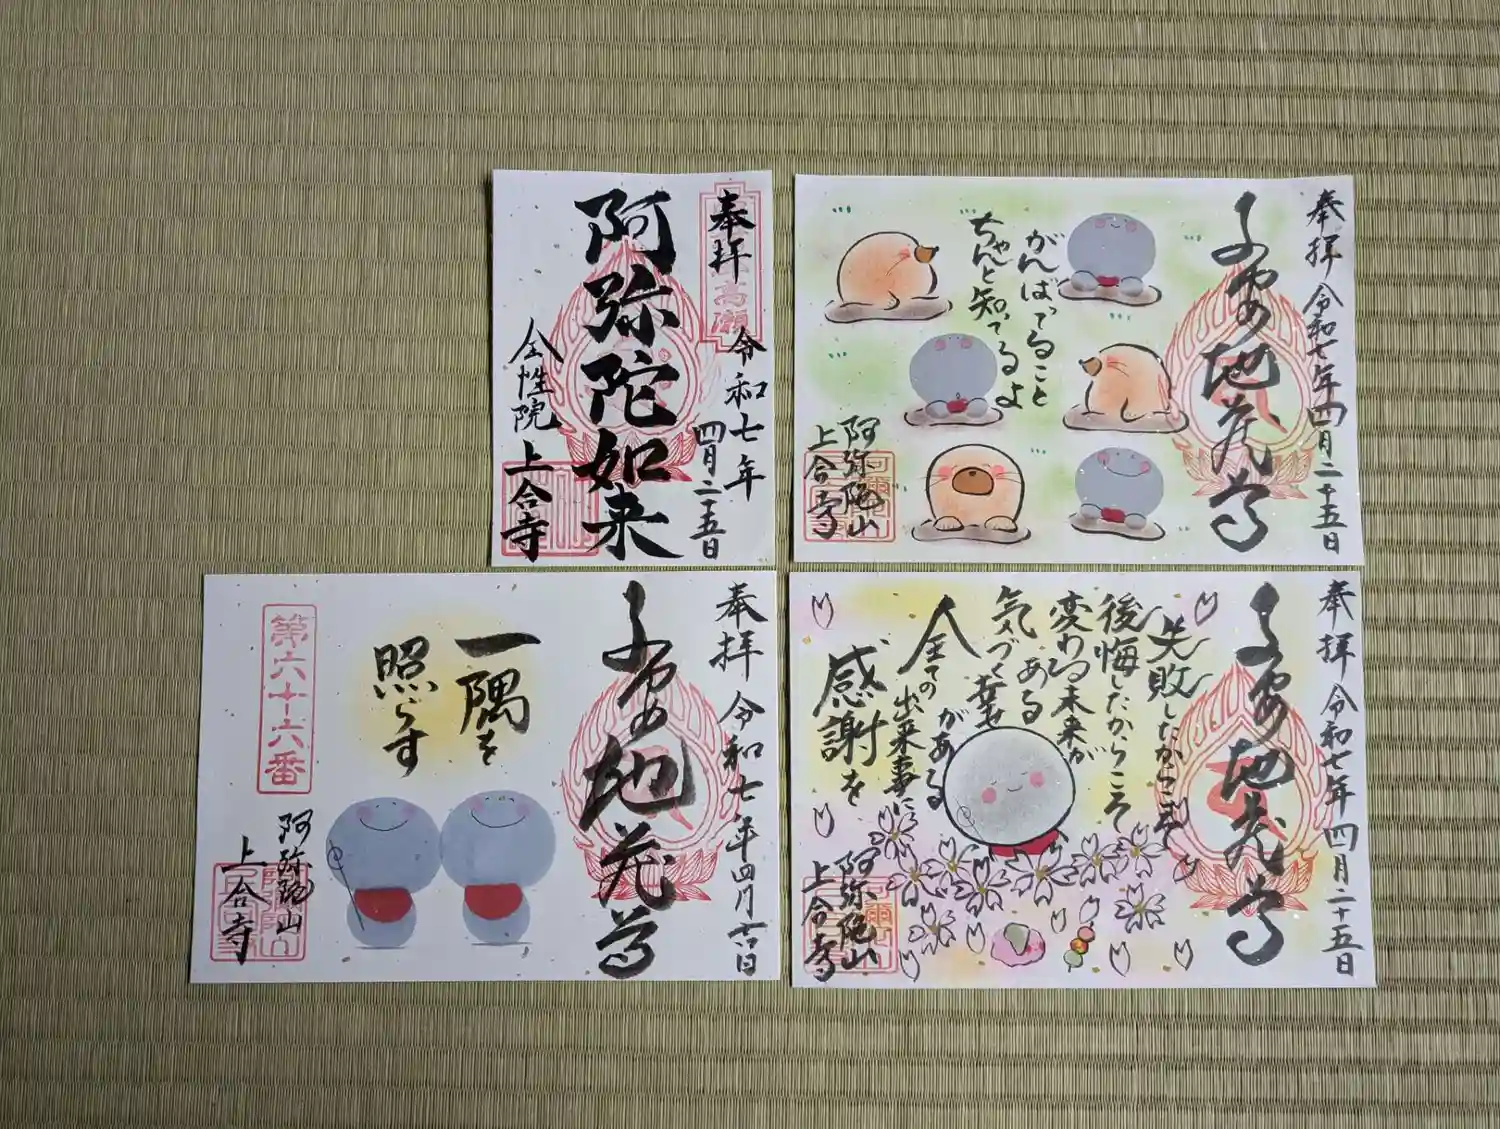 奉拝
高瀬
令和七年
四月二十五日
阿弥陀如来
全性院
上合寺
奉拝
令和七年四月二十五日
よつめ地蔵尊
がんばってること
ちゃんと知ってるよ
阿弥陀山
上合寺
奉拝
令和七年四月
日
地蔵尊
一隅を
照らす
第六十六番
阿弥陀山
上合寺
奉拝
令和七年四月二十五日
地蔵尊
失敗したからこそ
後悔したからこそ
変わる未来が
ある
気づく幸せ
がある
全ての出来事に
感謝を
阿弥陀山
上合寺